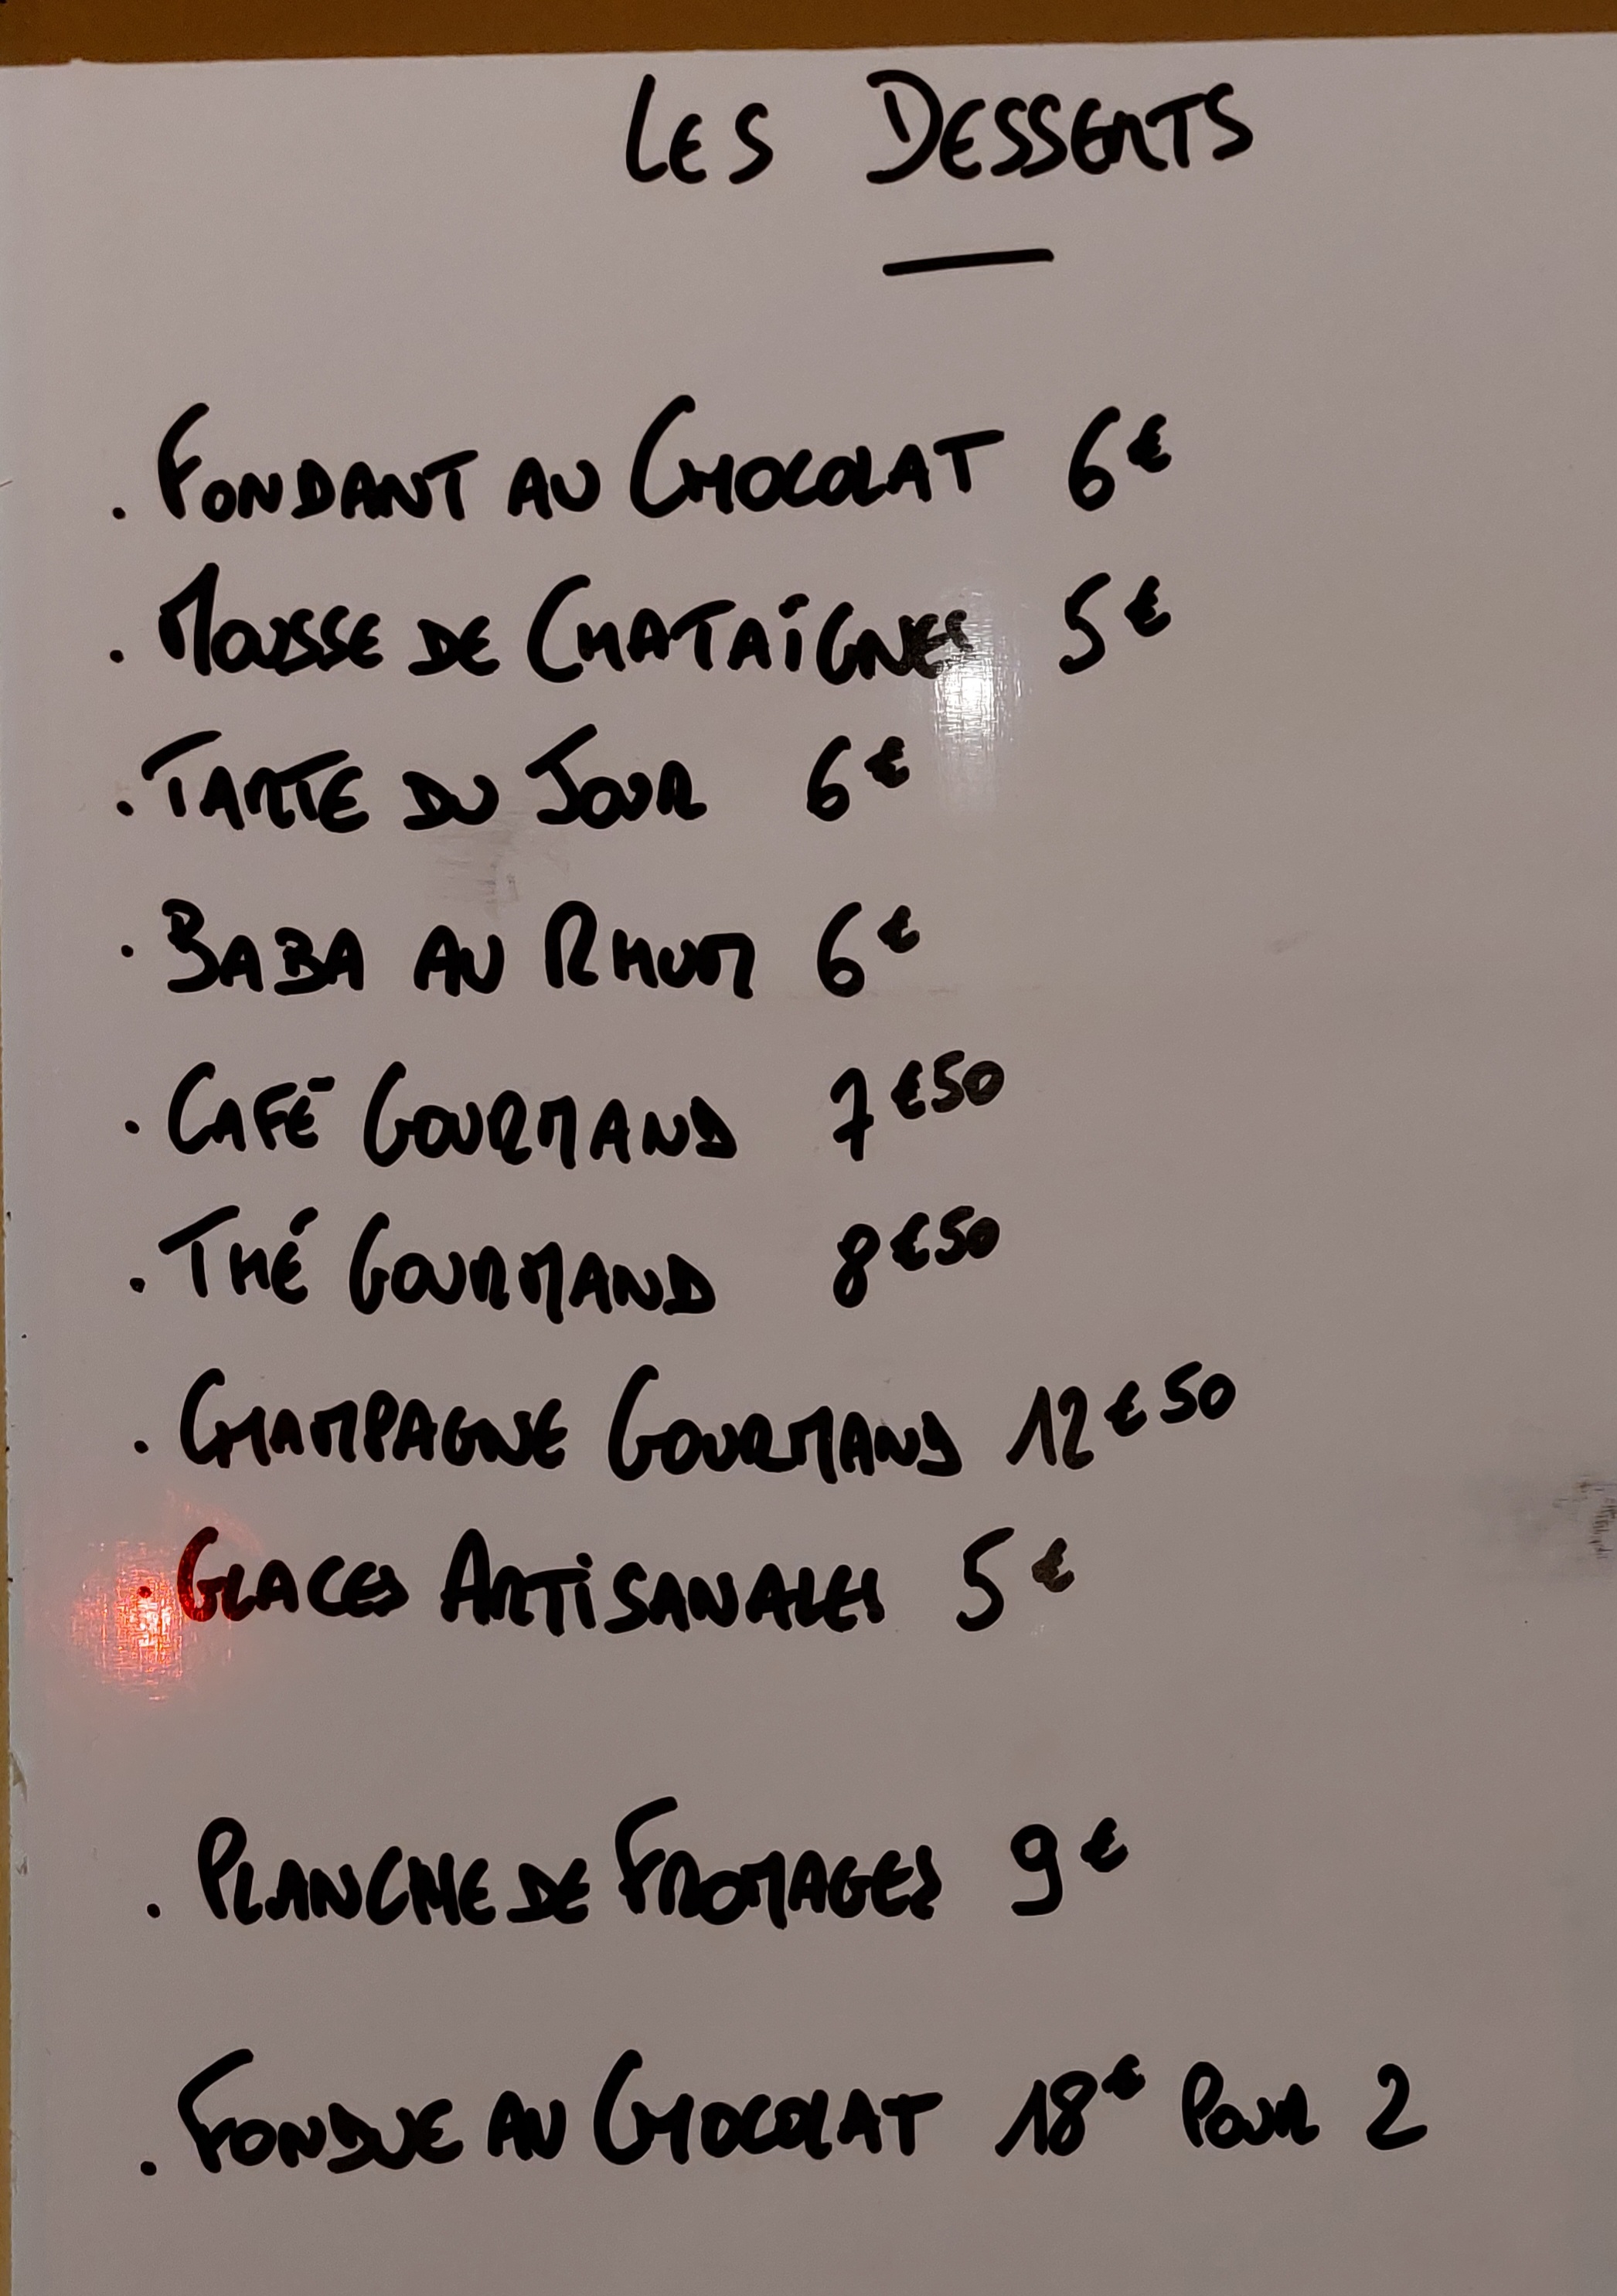 LES DESSERTS
. FONDANT AU CHOCOLAT 6€
. MOUSSE DE CHATAÎGNES 5€
. TARTE DU JOUR 6€
. BABA AU RHUM 6€
. CAFÉ GOURMAND 7€50
. THÉ GOURMAND 8€50
. CHAMPAGNE GOURMAND 12€50
. GLACES ARTISANALES 5€
. PLANCHE DE FROMAGES 9€
. FONDUE AU CHOCOLAT 18€ POUR 2